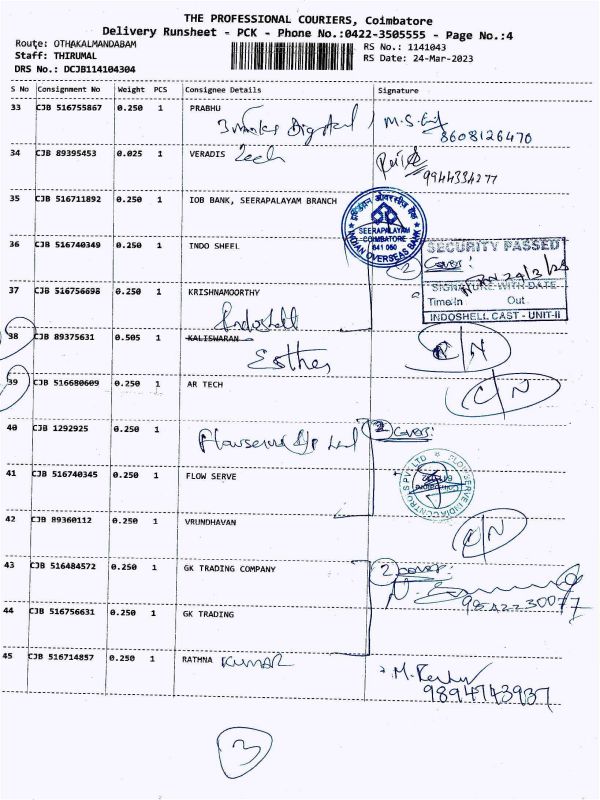 THE PROFESSIONAL COURIERS, Coimbatore
Delivery Runsheet - PCK - Phone No.:0422-3505555 - Page No.:4
Route: OTHAKALMANDABAM
RS No.: 1141043
Staff: THIRUMAL
RS Date: 24-Mar-2023
DRS No.: DCJB114104304
S No Consignment No Weight PCS Consignee Details Signature
33 CJB 516755867 0.250 1 PRABHU
8608126470
34 CJB 89395453 0.025 1 VERADIS Tech
9944334277
35 CJB 516711892 0.250 1 IOB BANK, SEERAPALAYAM BRANCH
SEERAPALAYAM
COIMBATORE
641 050
INDIAN OVERSEAS BANK
36 CJB 516740349 0.250 1 INDO SHEEL
2 Cover:
SECURITY PASSED
SIGNATURE WITH DATE
Time/In Out
INDOSHELL CAST - UNIT-II
37 CJB 516756698 0.250 1 KRISHNAMOORTHY
Indoshell
38 CJB 89375631 0.505 1 KALISWARAN
Esther
C/N
39 CJB 516680609 0.250 1 AR TECH
C/N
40 CJB 1292925 0.250 1
Flowserve
2 Cover:
41 CJB 516740345 0.250 1 FLOW SERVE
FLOWSERVE INDIA CONTROLS PVT. LTD.
42 CJB 89360112 0.250 1 VRUNDHAVAN
C/N
43 CJB 516484572 0.250 1 GK TRADING COMPANY
2 cover:
9842230077
44 CJB 516756631 0.250 1 GK TRADING
45 CJB 516714857 0.250 1 RATHNA KUMAR
9894743937
3